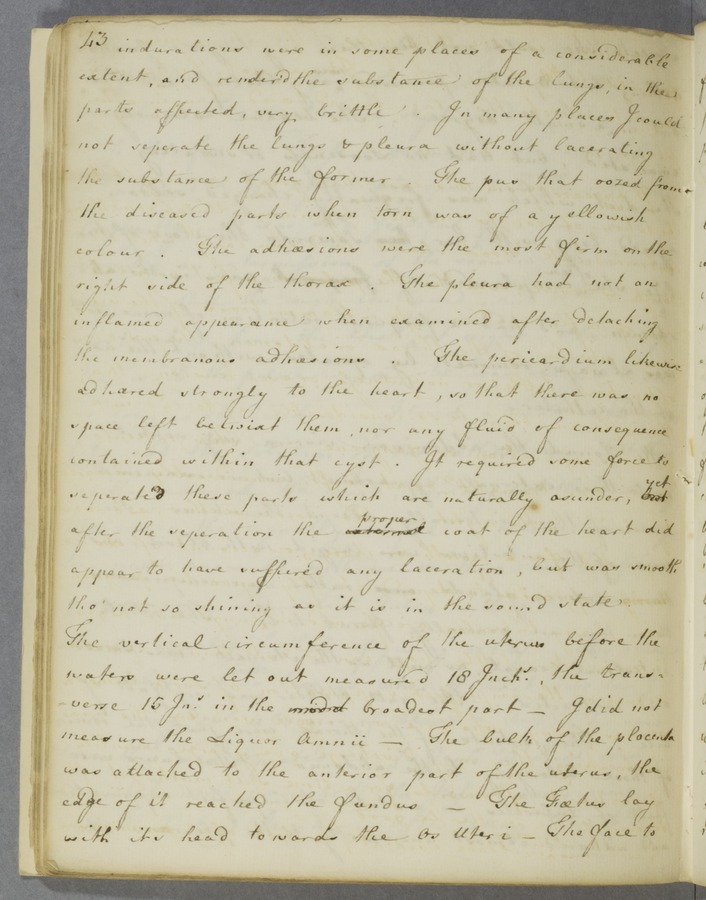 43 indurations were in some places of a considerable
extent, and render'd the substance of the lungs, in the
parts affected, very brittle. In many places I could
not seperate the lungs & pleura without lacerating
the substance of the former. The pus that oozed from
the diseased parts when torn was of a yellowish
colour. The adhæsions were the most firm on the
right side of the thorax. The pleura had not an
inflamed appearance when examined after detaching
the membranous adhæsions. The pericardium likewise
adhæred strongly to the heart, so that there was no
space left betwixt them, nor any fluid of consequence
contained within that cyst. It required some force to
seperate these parts which are naturally asunder, but yet
after the seperation the external proper coat of the heart did
appear to have suffered any laceration, but was smooth
tho' not so shining as it is in the sound state.
The vertical circumference of the uterus before the
waters were let out measured 18 Inchs., the trans=
=verse 15 Ins. in the broadest part — I did not
measure the Liquor Amnii — The bulk of the placenta
was attached to the anterior part of the uterus, the
edge of it reached the fundus — The Fœtus lay
with its head towards the Os Uteri — The face to